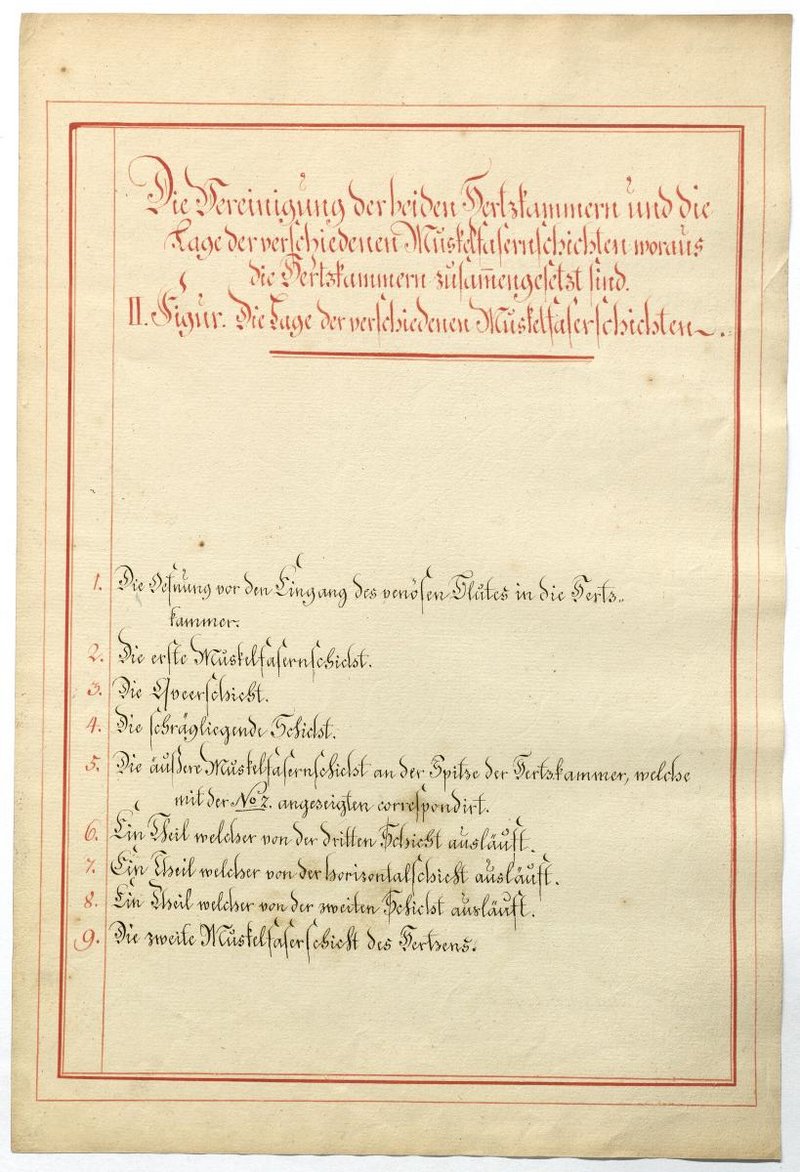 Die Vereinigung der beiden Hertzkammern und die
Lage der verschiedenen Muskelfasernschichten woraus
die Hertzkammern zusam̅engesetzt sind.
II. Figur. Die Lage der verschiedenen Muskelfaserschichten.
1. Die Oefnung vor den Eingang des venösen Blutes in die Hertz„
kammer.
2. Die erste Muskelfasernschicht.
3. Die Qveerschicht.
4. Die schrägliegende Schicht.
5. Die äußere Muskelfasernschicht an der Spitze der Hertzkammer, welche
mit der No 7. angezeigten correspondirt.
6. Ein Theil welcher von der dritten Schicht ausläuft.
7. Ein Theil welcher von der horizontalschicht ausläuft.
8. Ein Theil welcher von der zweiten Schicht ausläuft.
9. Die zweite Muskelfaserschicht des Hertzens.